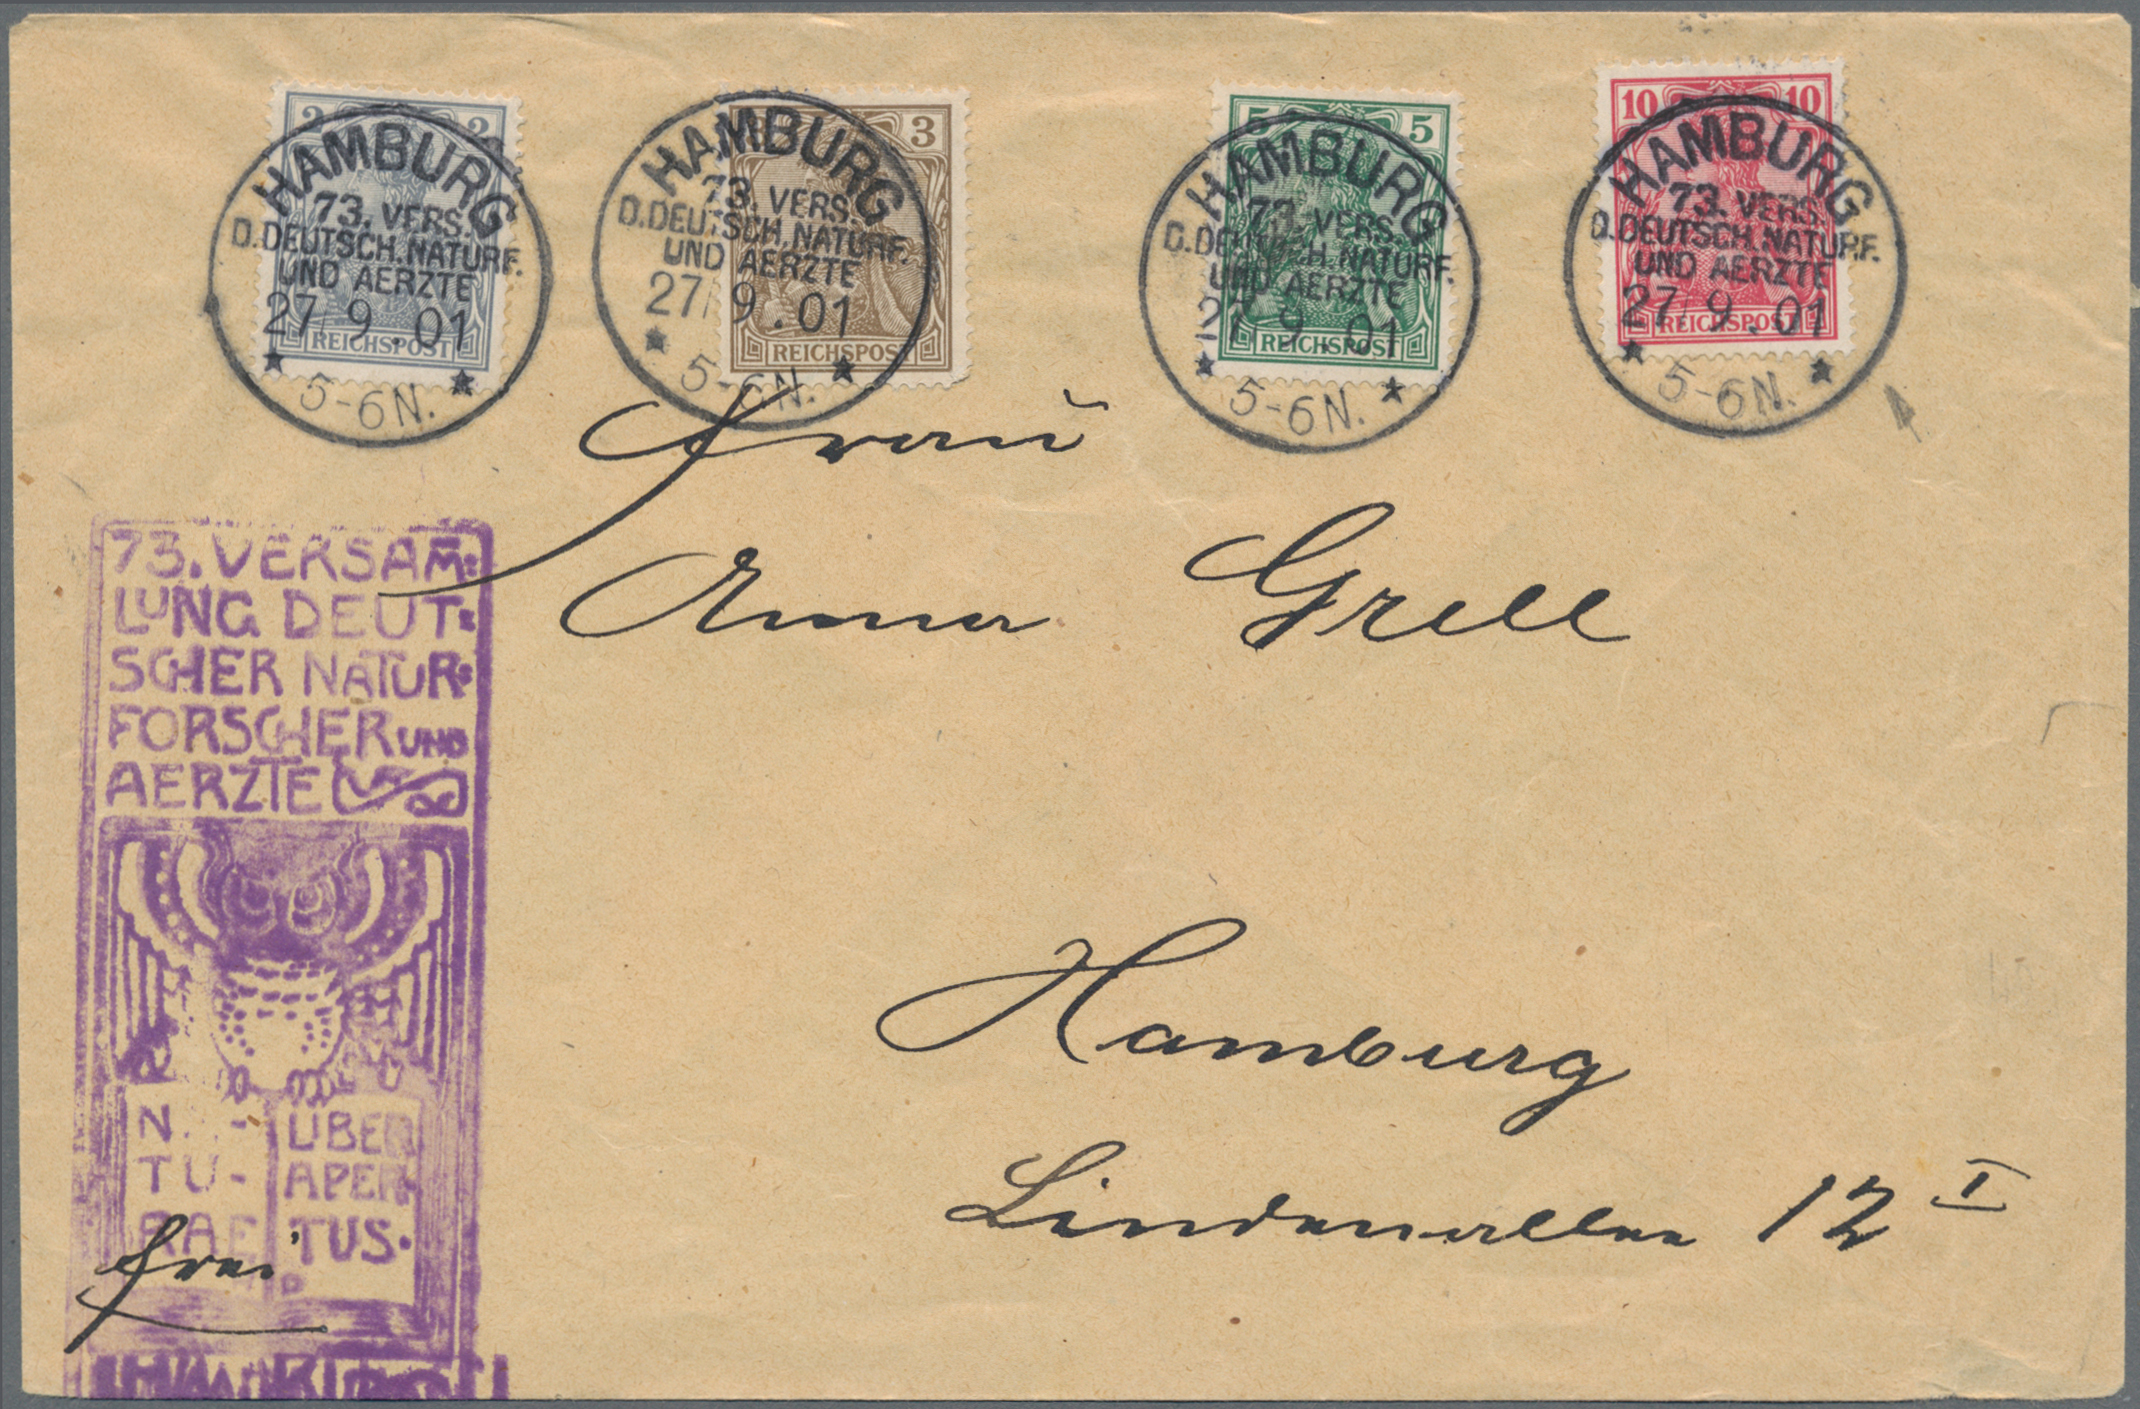 2 2
HAMBURG
73. VERS.
D. DEUTSCH. NATURF.
UND AERZTE
27/9.01
REICHSPOST
★ 5-6N. ★
3
HAMBURG
73. VERS.
D. DEUTSCH. NATURF.
UND AERZTE
27/9.01
REICHSPOST
★ 5-6N. ★
5 5
HAMBURG
73. VERS.
D. DEUTSCH. NATURF.
UND AERZTE
27/9.01
REICHSPOST
★ 5-6N. ★
10 10
HAMBURG
73. VERS.
D. DEUTSCH. NATURF.
UND AERZTE
27/9.01
REICHSPOST
★ 5-6N. ★
Frau
Anna Grell
Hamburg
Lindenallee 12 I
73. VERSAM=
LUNG DEUT=
SCHER NATUR=
FORSCHER UND
AERZTE
TU-
RAE
LIBER
APER-
TUS.
frei